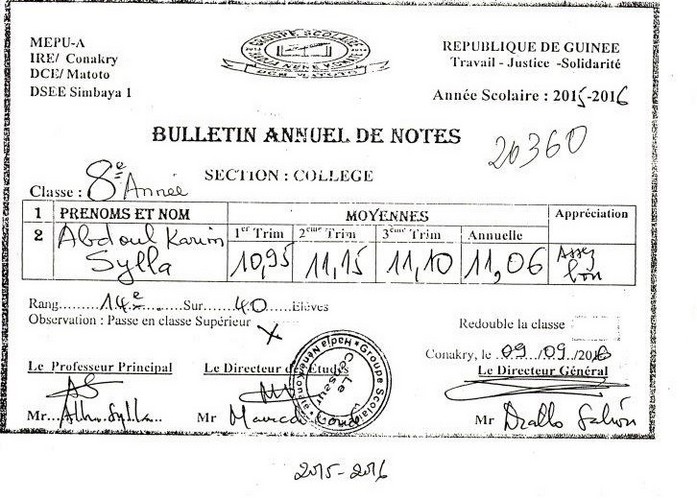 MEPU-A
IRE/ Conakry
DCE/ Matoto
DSEE Simbaya 1
REPUBLIQUE DE GUINEE
Travail - Justice -Solidarité
Année Scolaire : 2015-2016
BULLETIN ANNUEL DE NOTES
20360
SECTION : COLLEGE
Classe : 8e Année
1 PRENOMS ET NOM MOYENNES Appréciation
1er Trim 2ème Trim 3ème Trim Annuelle
2 Abdoul Karim Sylla 10,95 11,15 11,10 11,06 Assez bon
Rang......14e......Sur......40......Elèves
Observation : Passe en classe Supérieur X
Redouble la classe
Conakry, le 09/09/2016
Le Professeur Principal Le Directeur des Etudes Le Directeur Général
Groupe Scolaire Hadja Nènè
Le Censeur
Mr... Sylla Mr Mr Diallo
2015-2016